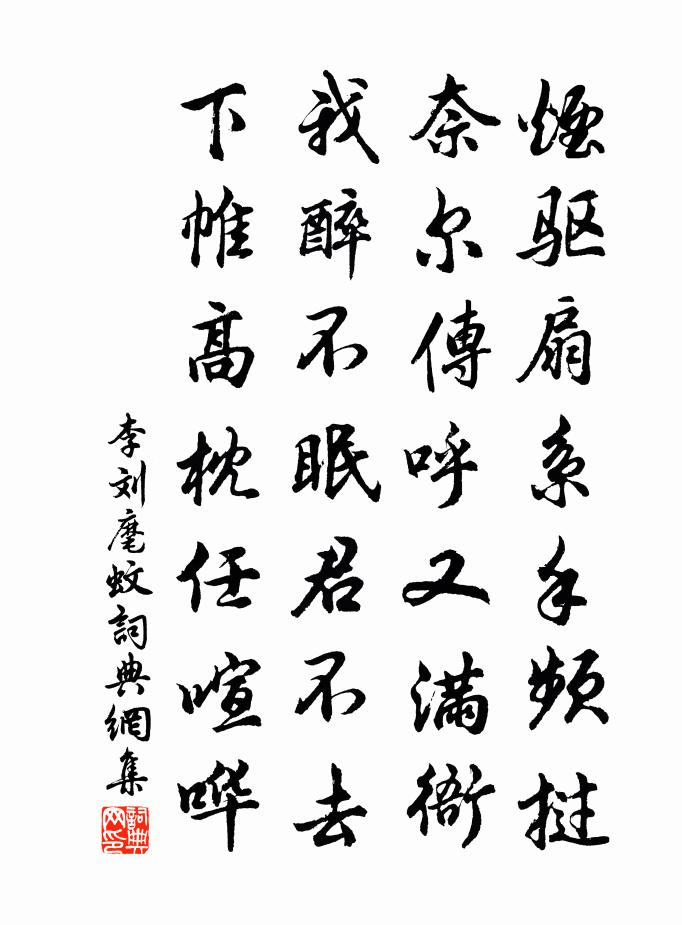 煙驱扇系手频撻
奈尔傳呼又滿衙
我醉不眠君不去
下帷高枕任喧哗
李刘麾蚊詞典網集
詞典网印